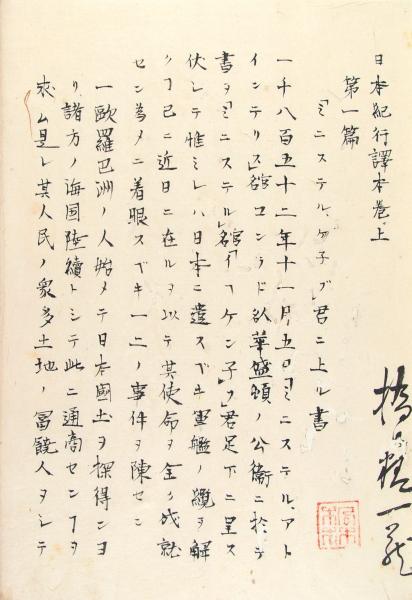 日本紀行譯本巻上
第一篇
「ミニステル、ケ子ヂ」君ニ上ル書
一千八百五十二年十一月五日「ミニステル、アト
インテリス」館「コンラド」於華盛頓ノ公衞ニ於テ
書ヲ「ミニステル」館「イフケン子ヂ」君足下ニ呈ス
伏シテ惟ミレハ日本ニ遣スベキ軍艦ノ纜ヲ解
クヿ已ニ近日ニ在ルヲ以テ其使命ヲ全ク成就
セン為メニ着眼スベキ一二ノ事件ヲ陳セン
一歐羅巴洲ノ人始メテ日本國土ヲ探得シヨ
リ諸方ノ海国陸續トシテ此ニ通商センヿヲ
求ム是レ其人民ノ衆多土地ノ冨饒人ヲシテ